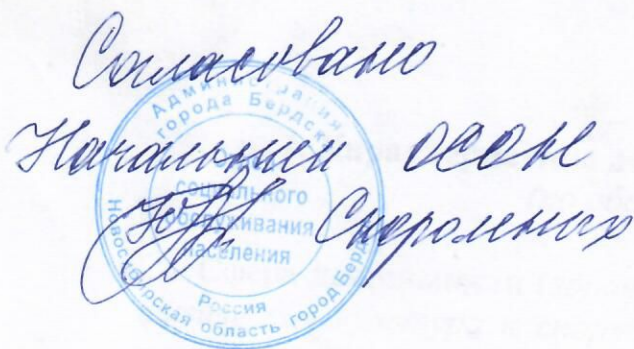 Согласовано
Начальник ОСОН
Администрация
города Бердска
отдел
социального
обслуживания
населения
Россия
Новосибирская область город Бердск